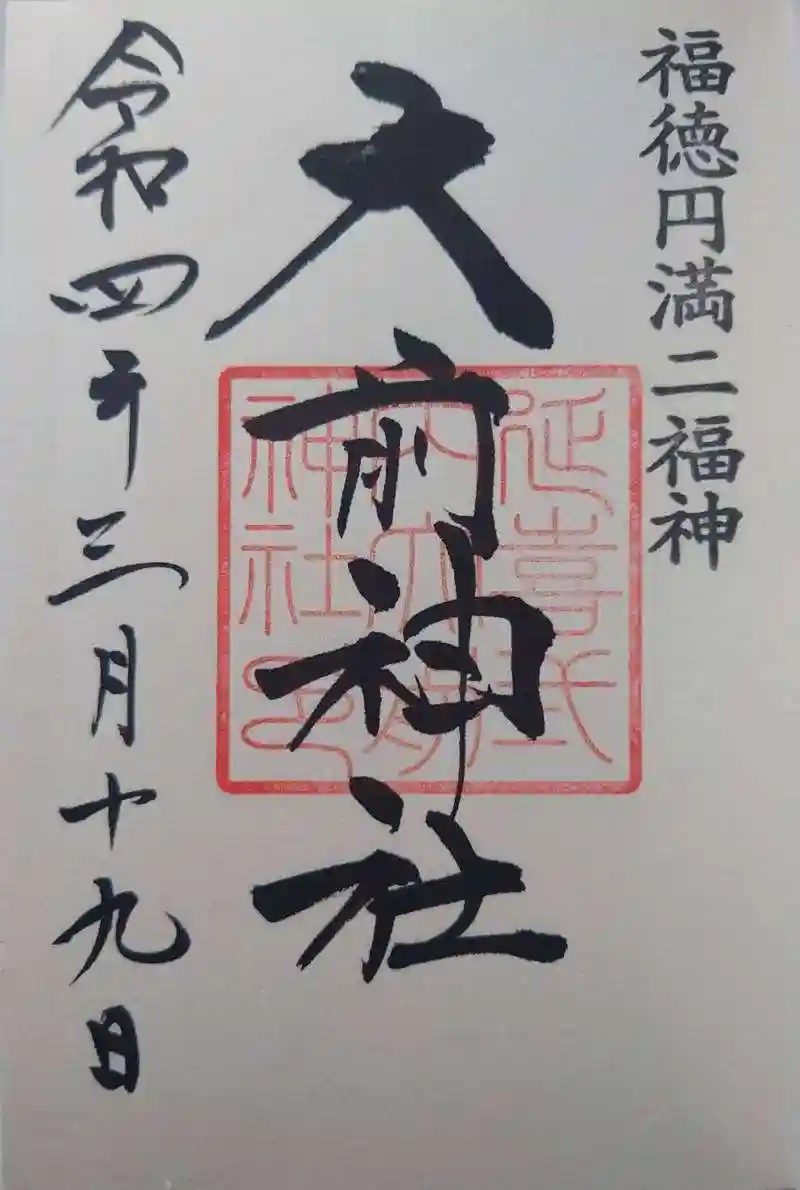 福徳円満二福神
大前神社
延喜式
内大前
神社印
令和四年三月十九日